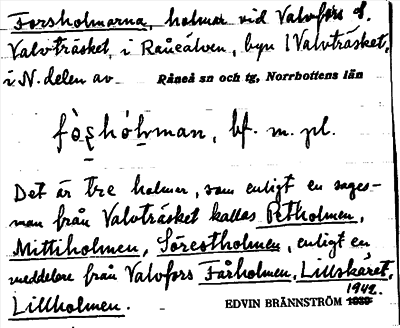 Forsholmarna, holmar vid Valvfors o.
Valvträsket i Råneälven, byn Valvträsket,
i N. delen av Råneå sn och tg, Norrbottens län
fò̜s̜hó̜l̜man, bf. m. pl.
Det är tre holmar, som enligt en sages-
man från Valvträsket kallas Petholmen,
Mittiholmen, Sörestholmen, enligt en
meddelare från Valvfors Fårholmen, Lillskäret,
Lillholmen.
EDVIN BRÄNNSTRÖM 1939
1942.